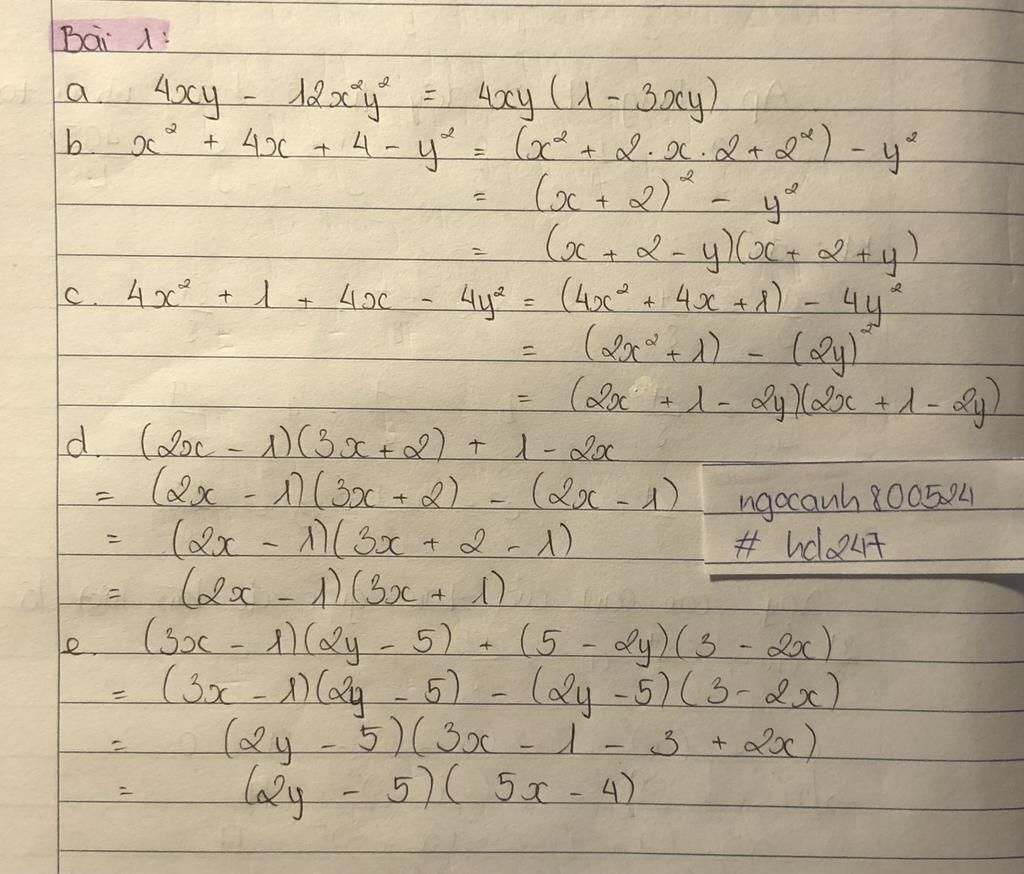 Bài 1:
a. 4xy - 12x²y² = 4xy (1 - 3xy)
b. x² + 4x + 4 - y² = (x² + 2.x.2 + 2²) - y²
= (x + 2)² - y²
= (x + 2 - y)(x + 2 + y)
c. 4x² + 1 + 4x - 4y² = (4x² + 4x + 1) - 4y²
= (2x² + 1) - (2y)²
= (2x + 1 - 2y)(2x + 1 - 2y)
d. (2x - 1)(3x + 2) + 1 - 2x
= (2x - 1)(3x + 2) - (2x - 1)
= (2x - 1)(3x + 2 - 1)
= (2x - 1)(3x + 1)
ngocanh800524
# hd247
e. (3x - 1)(2y - 5) + (5 - 2y)(3 - 2x)
= (3x - 1)(2y - 5) - (2y - 5)(3 - 2x)
= (2y - 5)(3x - 1 - 3 + 2x)
= (2y - 5)(5x - 4)